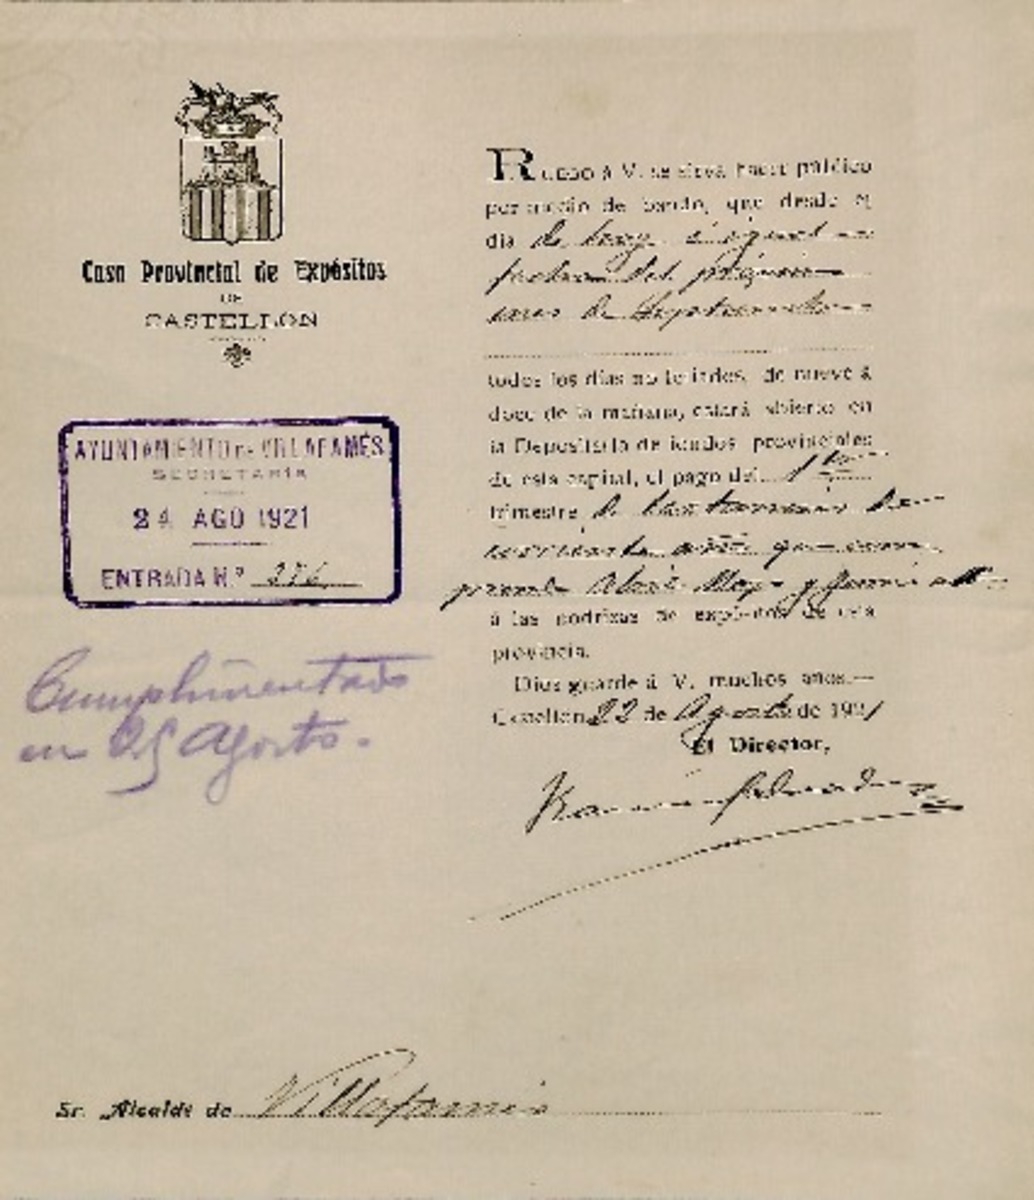 Casa Provincial de Expósitos
DE
CASTELLÓN
AYUNTAMIENTO DE VILLAFAMÉS
SECRETARÍA
24 AGO 1921
ENTRADA N.º 376
Cumplimentado
en 25 Agosto.
RUEGO á V. se sirva hacer público
por medio de bando, que desde el
día de hoy é igual
fecha del próximo
mes de Septiembre
todos los días no feriados, de nueve á
doce de la mañana, estará abierto en
la Depositaría de fondos provinciales
de esta capital, el pago del 1er
trimestre
corriente año que com-
prende Abril Mayo y Junio
á las nodrizas de expósitos de esta
provincia.
Dios guarde á V. muchos años.—
Castellón 22 de Agosto de 1921
El Director,
Sr. Alcalde de Villafamés